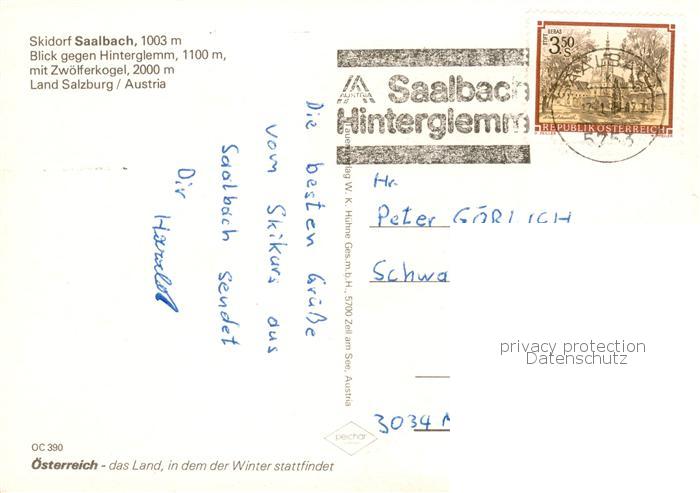 Skidorf Saalbach, 1003 m
Blick gegen Hinterglemm, 1100 m,
mit Zwölferkogel, 2000 m
Land Salzburg / Austria
STIFT GERAS
3.50 S
REPUBLIK ÖSTERREICH
AUSTRIA
Saalbach
Hinterglemm
5753
Die besten Grüße
vom Skikurs aus
Saalbach sendet
Dir Harald
Verlag W. K. Hühne Ges.m.b.H., 5700 Zell am See, Austria
Hr.
Peter GÖRLICH
Schwa
privacy protection
Datenschutz
3034
peichar
OC 390
Österreich - das Land, in dem der Winter stattfindet